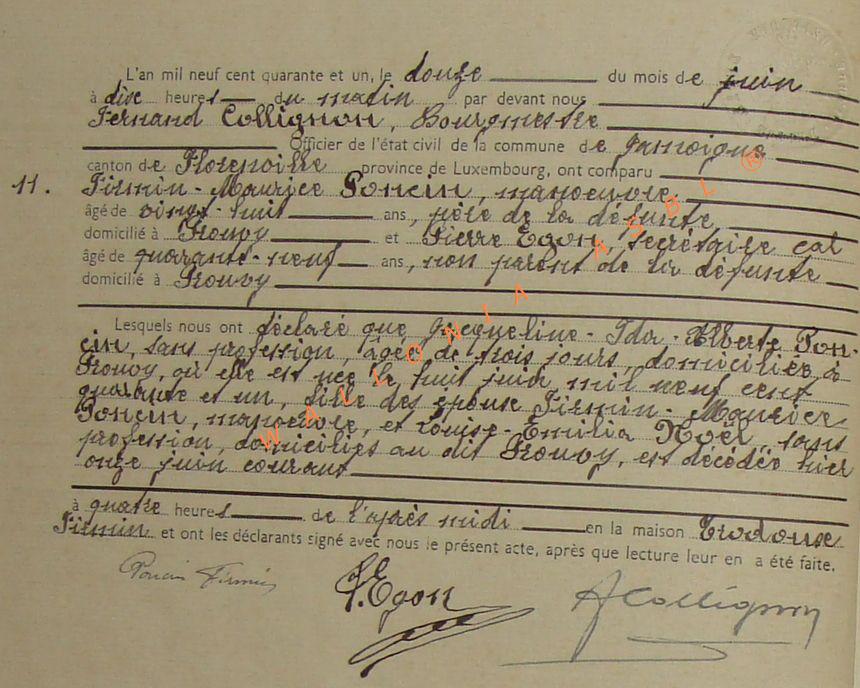 L'an mil neuf cent quarante et un, le douze du mois de juin
à dix heures du matin par devant nous
Fernand Collignon, Bourgmestre
Officier de l'état civil de la commune de Jamoigne
canton de Florenville province de Luxembourg, ont comparu
11. Firmin-Maurice Poncin, manoeuvre
âgé de vingt-huit ans, père de la défunte
domicilié à Prouvy et Pierre Egon, secrétaire cal
âgé de quarante-neuf ans, non parent de la défunte
domicilié à Prouvy
Lesquels nous ont déclaré que Jacqueline-Ida-Alberte Pon-
cin, sans profession, âgée de trois jours, domiciliée à
Prouvy, où elle est née le huit juin mil neuf cent
quarante et un, fille des epoux Firmin-Maurice
Poncin, manoeuvre, et Louise-Emilia Noël, sans
profession, domiciliés au dit Prouvy, est décédée hier
onze juin courant
à quatre heures de l'après midi en la maison
Firmin et ont les déclarants signé avec nous le présent acte, après que lecture leur en a été faite.
Poncin Firmin
P. Egon
F Collignon
WALLONIA ASBL ®